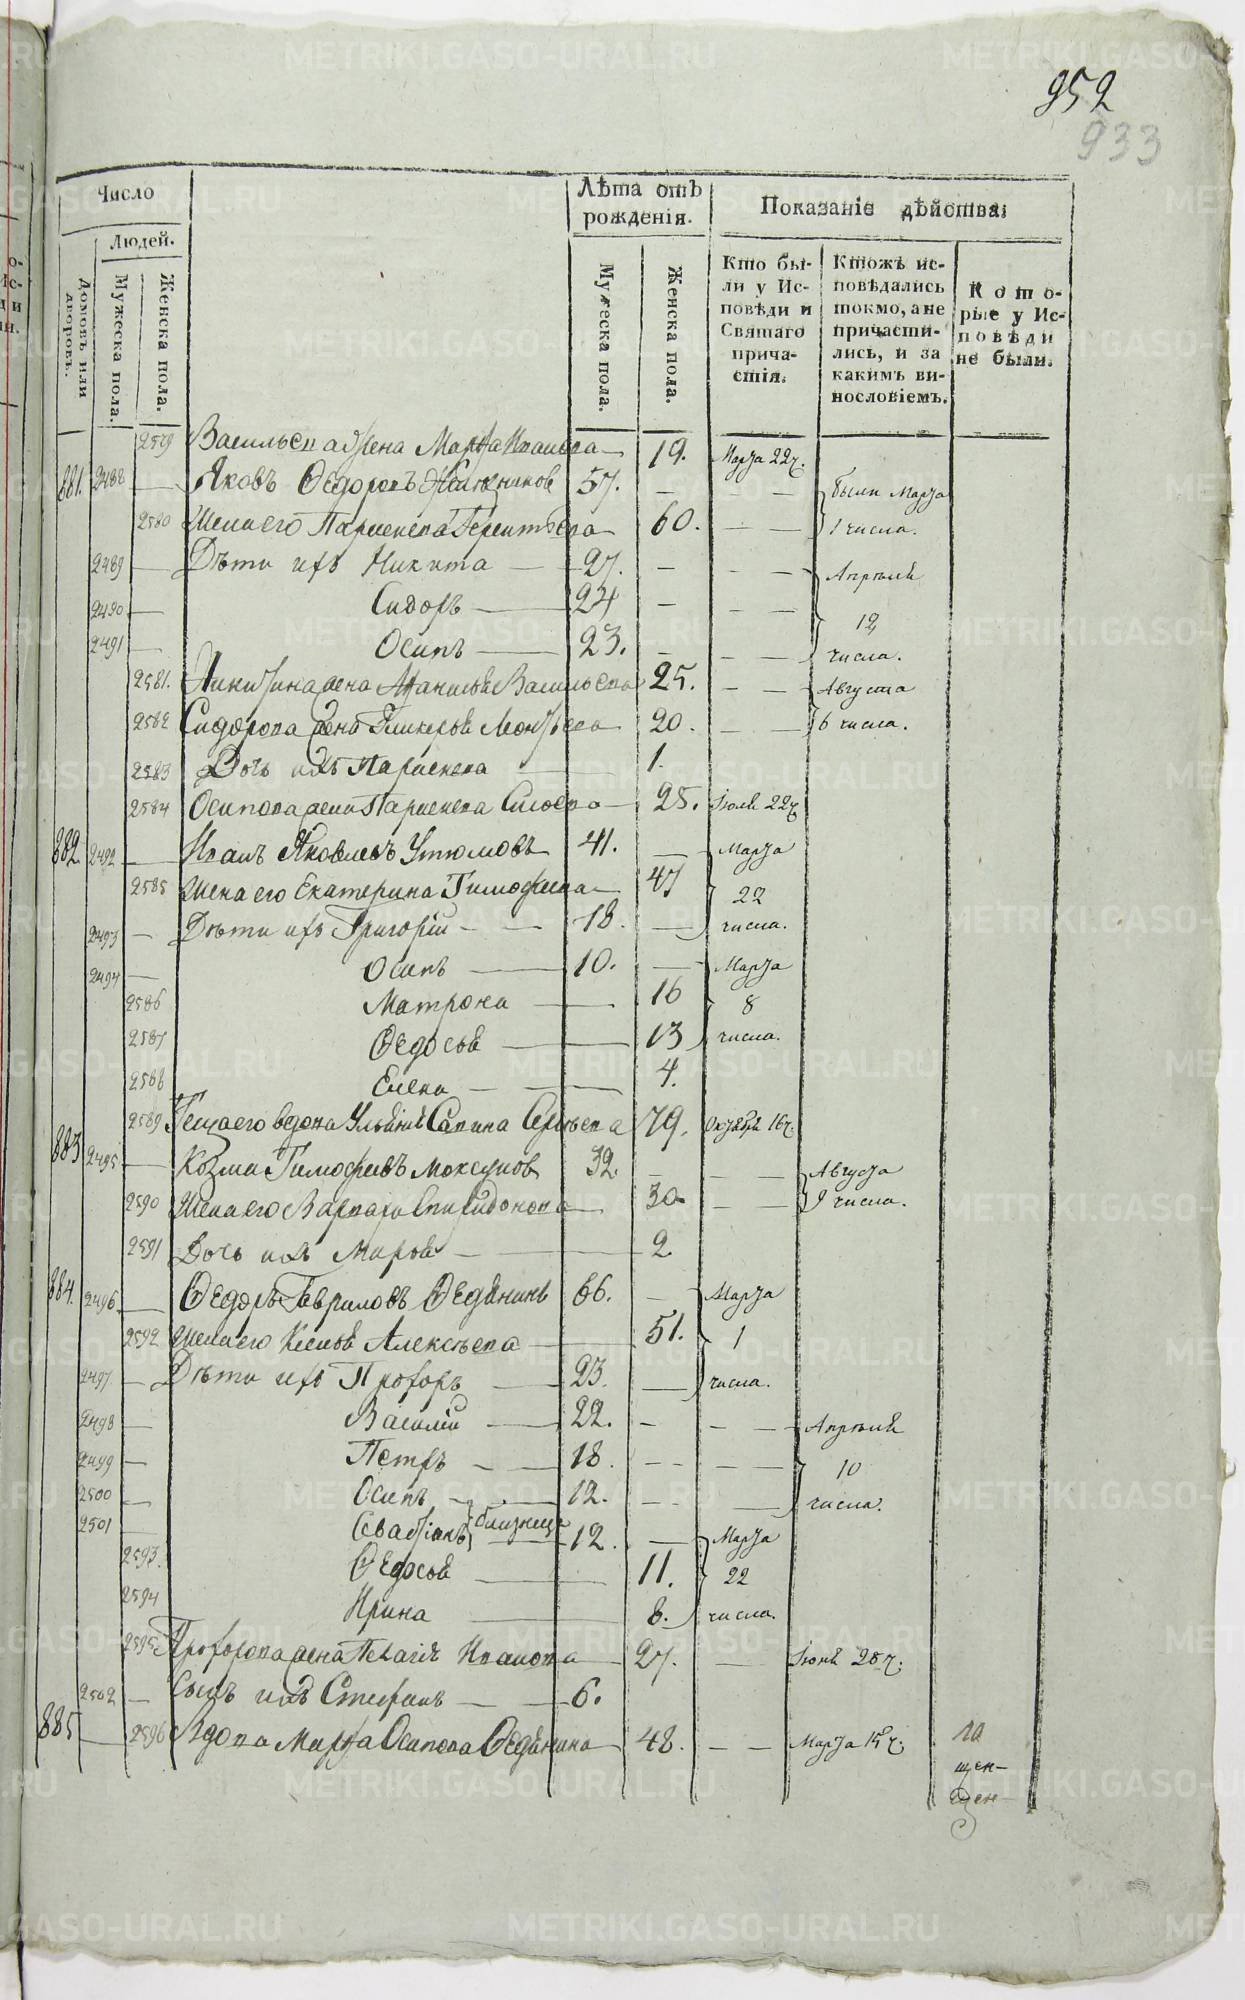 952
933
Число
Лѣта отъ рожденія.
Показаніе дѣйства:
Людей.
Домовъ или дворовъ.
Мужеска пола.
Женска пола.
Мужеска пола.
Женска пола.
Кто бы-
ли у Ис-
повѣди и
Святаго
прича-
стія.
Ктожъ ис-
повѣдались
токмо, а не
причасти-
лись, и за
какимъ ви-
нословіемъ.
Кото-
рые у Ис-
повѣди
не были.
2579 Васильева жена Марфа Иванова 19. Марта 22 ч.
881. 2488 Яковъ Ѳедоровъ 57. были Марта
2580 Жена его Парасковья Терентьева 60. 1 числа.
2489 Дѣти ихъ Никита 27. Апрѣля
2490 Сидоръ 24 12
2491 Осипъ 23. числа.
2581. Никитина жена Васильева 25. Августа
2582 Сидорова жена Гликерія 20. 6 числа.
2583 Дочь ихъ Парасковья 1.
2584 Осипова жена Парасковья 25. Іюля 22 ч.
882 2492 Иванъ Яковлевъ Утюмовъ 41. Марта
2585 Жена его Екатерина Тимофеева 47 22
2493 Дѣти ихъ Григорій 18. числа.
2494 Осипъ 10. Марта
2586 Матрона 16 8
2587 Ѳедосья 13 числа.
2588 Елена 4.
2589 Теща его вдова Савина Сергѣева 79. Октября 16 ч.
883 2495 Козма Тимофеевъ 32. Августа
2590 Жена его Варвара Спиридонова 30 9 числа.
2591 Дочь ихъ Марья 2
884. 2496 Ѳедоръ Гавриловъ Ѳедянинъ 66. Марта
2592 Жена его Ксенья Алексѣева 51. 1
2497 Дѣти ихъ Прохоръ 23. числа.
2498 Василій 22. Апрѣля
2499 Петръ 18. 10
2500 Осипъ 12. числа.
2501 близнецы 12. Марта
2593. Ѳедосья 11. 22
2594 Ирина 8. числа.
2595 Прохорова жена Пелагія Иванова 27. Іюня 28 ч.
2502 Сынъ ихъ Стефанъ 6.
885 2596 Вдова Марфа Осипова Ѳедянина 48. Марта 15 ч.